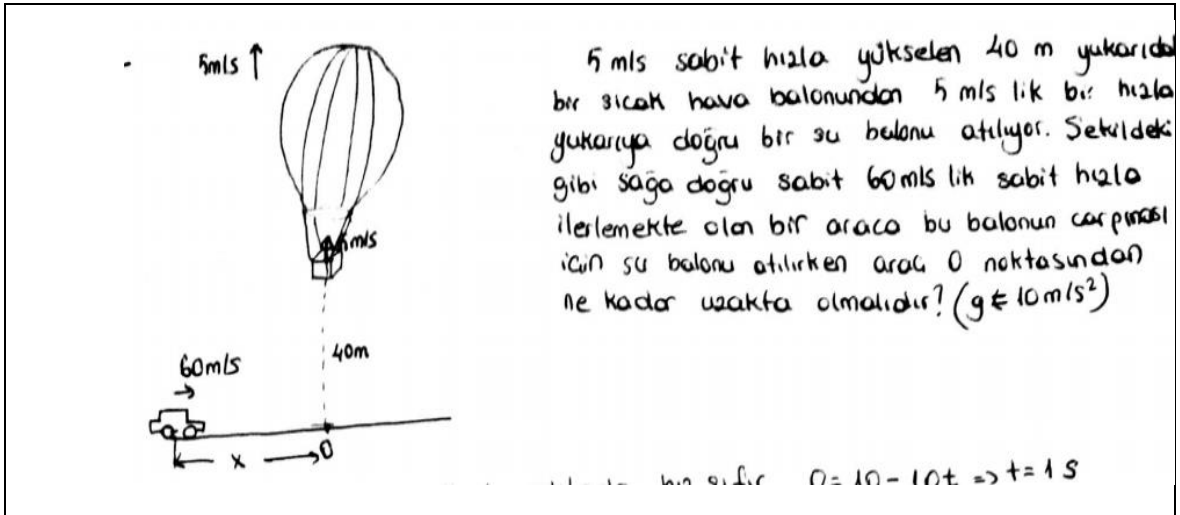 5m/s
5 m/s sabit hızla yükselen 40 m yukarıda
bir sıcak hava balonundan 5 m/s lik bir hızla
yukarıya doğru bir su balonu atılıyor. Şekildeki
gibi sağa doğru sabit 60 m/s lik sabit hızla
ilerlemekte olan bir araca bu balonun çarpması
için su balonu atılırken araç O noktasından
ne kadar uzakta olmalıdır? (g = 10 m/s²)
5m/s
40m
60m/s
x
O
hız sıfır 0 = 10 - 10t => t = 1 s